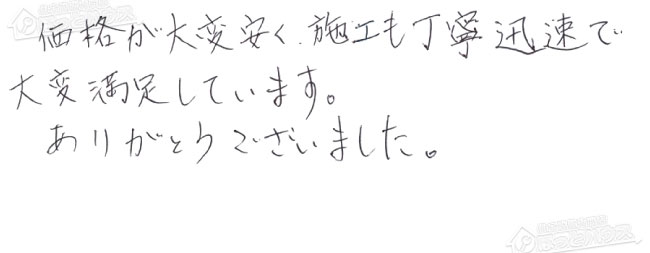 価格が大変安く、施工も丁寧迅速で
大変満足しています。
ありがとうございました。